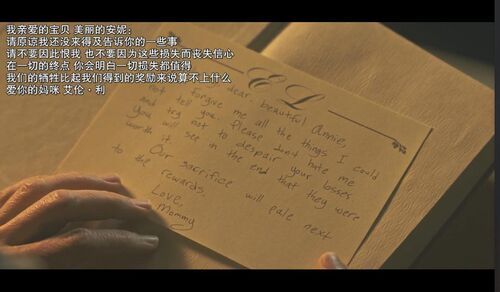 我亲爱的宝贝 美丽的安妮:
请原谅我还没来得及告诉你的一些事
请不要因此恨我 也不要因为这些损失而丧失信心
在一切的终点 你会明白一切损失都值得
我们的牺牲比起我们得到的奖励来说算不上什么
爱你的妈咪 艾伦·利
E L
dear beautiful Annie,
forgive me all the things I could
not tell you. Please don't hate me
and try not to despair your losses
You will see in the end that they were
worth it
Our sacrifice will pale next
to the rewards.
Love,
Mommy